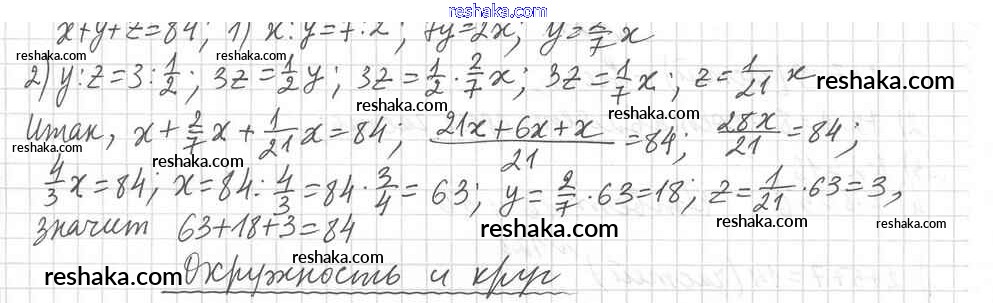 reshaka.com
x+y+z=84; 1) x:y=7·2; 7y=2x; y=2/7 x
reshaka.com reshaka.com reshaka.com
2) y:z=3:1/2; 3z=1/2 y; 3z=1/2·2/7 x; 3z=1/7 x; z=1/21 x
reshaka.com reshaka.com
Итак, x+2/7 x+1/21 x=84; (21x+6x+x)/21=84; 28x/21=84;
reshaka.com reshaka.com reshaka.com
4/3 x=84; x=84:4/3=84·3/4=63; y=2/7·63=18; z=1/21·63=3,
reshaka.com reshaka.com
значит 63+18+3=84
reshaka.com reshaka.com
Окружность и круг
reshaka.com reshaka.com reshaka.com